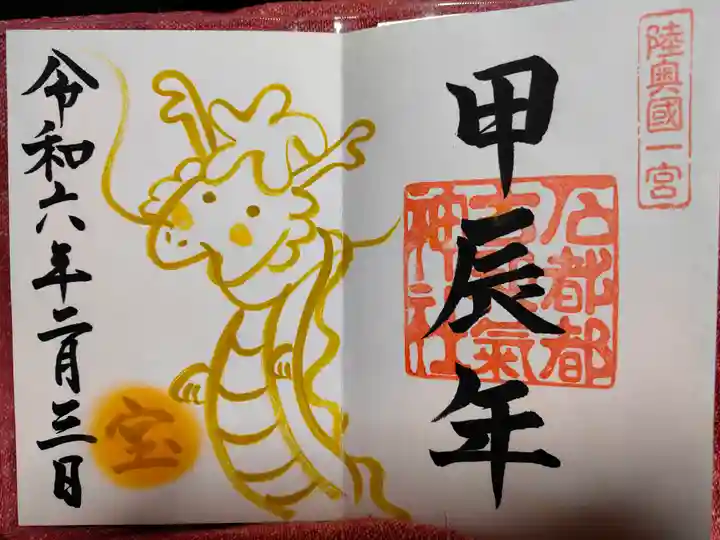 陸奥國一宮
甲辰年
石都都
古和氣
神社
宝
令和六年二月三日